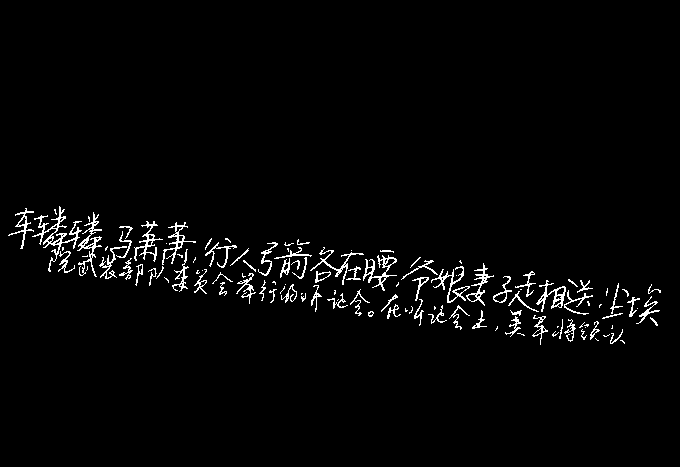 车辚辚,马萧萧,行人弓箭各在腰,爷娘妻子走相送,尘埃
院武装部队委员会举行的听证会。在听证会上,美军将领认